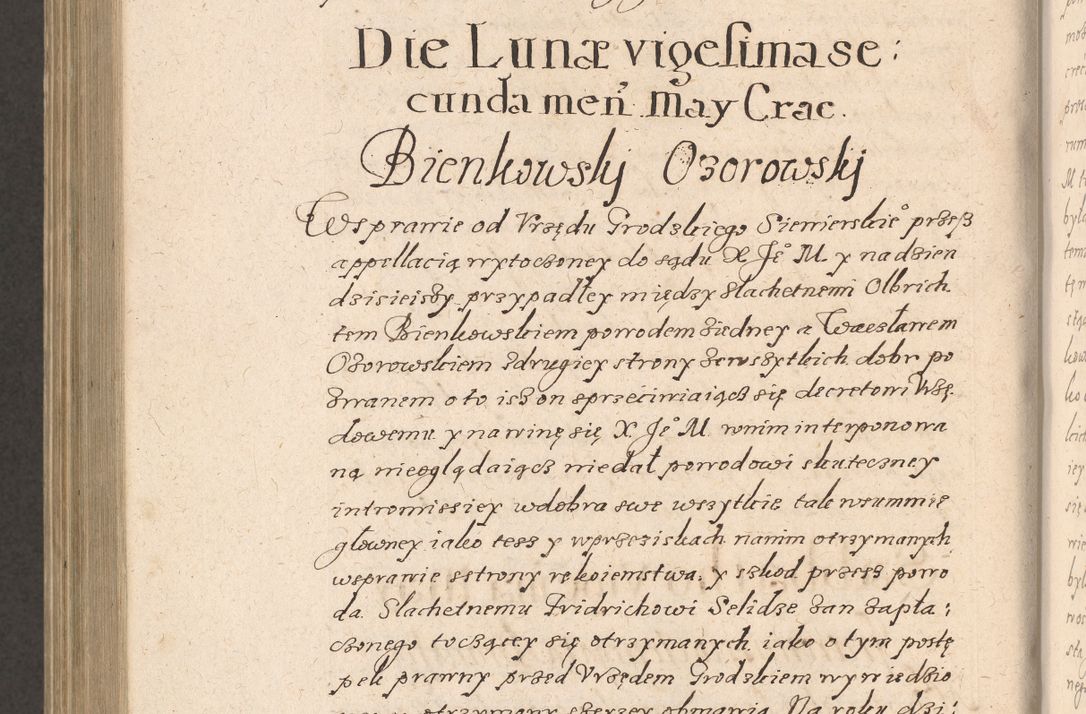 Die Lunæ vigesima se:
cunda menſ. May Crac.
Bienkowskj Ozorowskj
W sprawie od Vrzędu Grodzkiego Siewierskieº przesz
appellacią wytoczoney do sądu X. Jeº M. y na dzien
dzisieiszy przypadłey między Slachetnemi Olbrich
tem Bienkowskiem powodem ziedney a Wacesławem
Ozorowskiem zdrugiey strony ze wszytkich dobr po
zwanem o to isz on sprzeciwiaiącz się decretowi Vrzę
dowemu y na winę się X. Jeº M. wnim interponowa
ną nieoglądaiącz niedał powodowi skuteczney
intromissiey w dobra swe wszytkie tak w summie
głowney iako tesz y w przeziskach nanim otrzymanych
wsprawie z strony rękoiemstwa, y szkod przesz powo
da Slachetnemu Fridrichowi Selidze zan zapła:
czonego toczącey się otrzymanych iako o tym postę
pek prawny przed Vrzędem Grodzkiem wywiedzio
otrzymany szerzey obmawia. Na roku dzi: